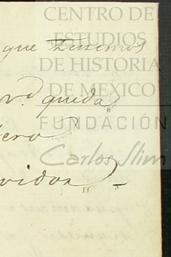 CENTRO DE
ESTUDIOS
DE HISTORIA
DE MÉXICO
FUNDACIÓN
Carlos Slim
que tenemos
V.d queda
ero
vidor